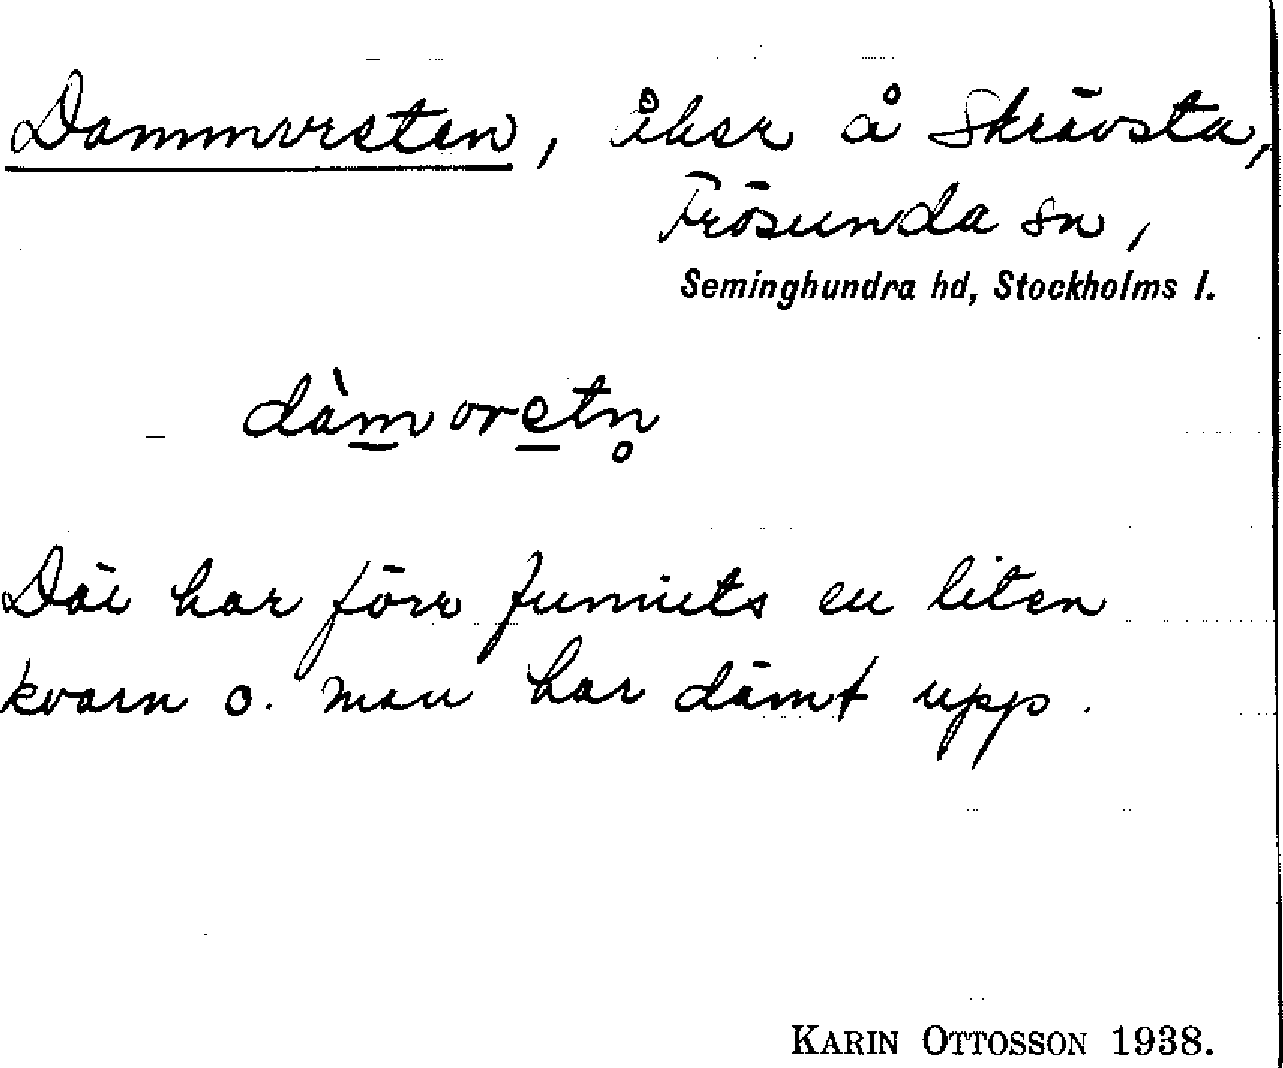 Dammvreten, åker å Skrävsta,
Frösunda sn,
Seminghundra hd, Stockholms l.
dàm vretn̥
Där har förr funnits en liten
kvarn o. man har dämt upp.
KARIN OTTOSSON 1938.